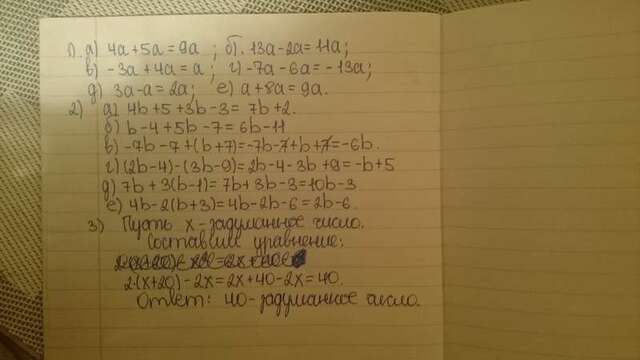 1. а) 4a+5a=9a; б. 13a-2a=11a;
в) -3a+4a=a; г) -7a-6a=-13a;
д) 3a-a=2a; е) a+8a=9a.
2) а) 4b+5+3b-3=7b+2.
б) b-4+5b-7=6b-11
в) -7b-7+(b+7)=-7b-7+b+7=-6b.
г) (2b-4)-(3b-9)=2b-4-3b+9=-b+5
д) 7b+3(b-1)=7b+3b-3=10b-3
е) 4b-2(b+3)=4b-2b-6=2b-6.
3) Пусть x-задуманное число.
Составим уравнение:
2(x+20)-2x=2x+40-2x=40
Ответ: 40-задуманное число